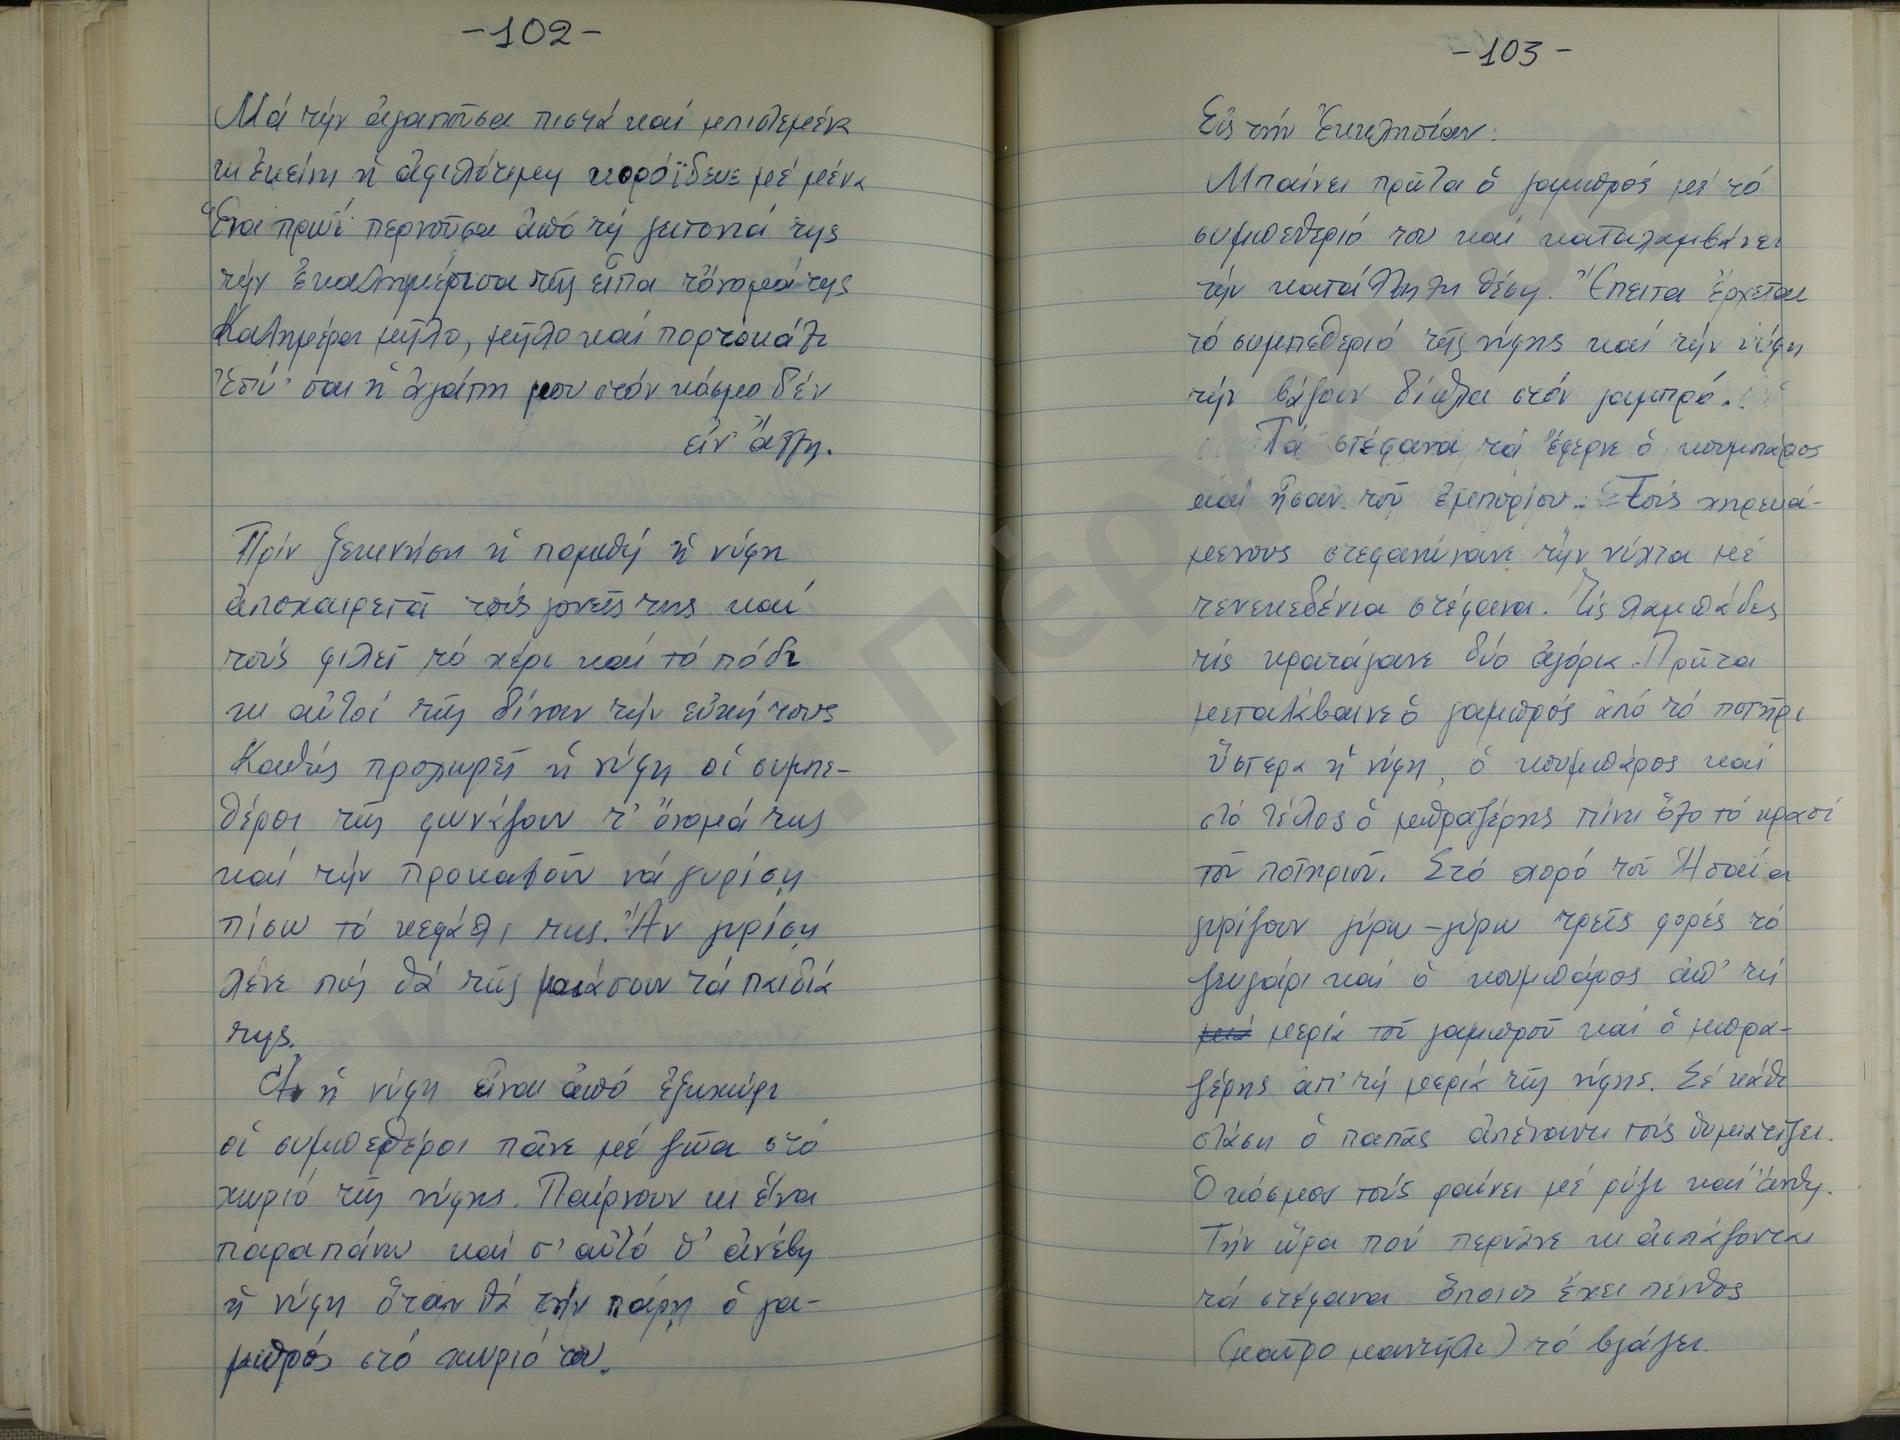 -102-
Μά τήν ἀγαποῦσα πιστά καί μπιστεμένα
κι ἐκείνη ἡ ἀφιλότιμη κορόϊδευε μέ μένα
Ἕνα πρωΐ περνοῦσα ἀπό τή γειτονιά της
τήν ἐκαλημέρισα τῆς εἶπα τὄνομά της
Καλημέρα μῆλο, μῆλο καί πορτοκάλι
Ἐσύ 'σαι ἡ ἀγάπη μου στόν κόσμο δέν
εἶν' ἄλλη.
Πρίν ξεκινήση ἡ πομπή ἡ νύφη
ἀποχαιρετᾶ τούς γονεῖς της καί
τούς φιλεῖ τό χέρι καί τό πόδι
κι αὐτοί τῆς δίνουν τήν εὐχή τους
Καθώς προχωρεῖ ἡ νύφη οἱ συμπε-
θέροι τῆς φωνάζουν τ' ὄνομά της
καί τήν προκαλοῦν νά γυρίση
πίσω τό κεφάλι της. Ἄν γυρίση
λένε πώς θά τῆς μοιάσουν τά παιδιά
της.
Ἄν ἡ νύφη εἶναι ἀπό ξενοχώρι
οἱ συμπεθέροι πᾶνε μέ ζῶα στό
χωριό τῆς νύφης. Παίρνουν κι ἕνα
παραπάνω καί σ' αὐτό θ' ἀνέβη
ἡ νύφη ὅταν θά τήν πάρη ὁ γα-
μπρός στό χωριό του.
-103-
Εἰς τήν Ἐκκλησίαν.
Μπαίνει πρῶτα ὁ γαμπρός μέ τό
συμπεθεριό του καί καταλαμβάνει
τήν κατάλληλη θέση. Ἔπειτα ἔρχεται
τό συμπεθεριό τῆς νύφης καί τήν νύφη
τήν βάζουν δίπλα στόν γαμπρό.
Τά στέφανα τά ἔφερνε ὁ κουμπάρος
καί ἦσαν τοῦ ἐμπορίου. Τούς χηρευά-
μενους στεφανώνανε τήν νύχτα μέ
τενεκεδένια στέφανα. Τίς λαμπάδες
τίς κρατάγανε δύο ἀγόρια. Πρῶτα
μεταλάβαινε ὁ γαμπρός ἀπό τό ποτῆρι
ὕστερα ἡ νύφη, ὁ κουμπάρος καί
στό τέλος ὁ μπραζέρης πίνει ὅλο τό κρασί
τοῦ ποτηριοῦ. Στό χορό τοῦ Ἡσαΐα
γυρίζουν γύρω-γύρω τρεῖς φορές τό
ζευγάρι καί ὁ κουμπάρος ἀπ' τή
μεριά τοῦ γαμπροῦ καί ὁ μπρα-
ζέρης ἀπ' τή μεριά τῆς νύφης. Σέ κάθε
στάση ὁ παπᾶς ἀπέναντι τούς θυμιατίζει.
Ὁ κόσμος τούς ραίνει μέ ρύζι καί ἄνθη.
Τήν ὥρα πού περνᾶνε κι ἀσπάζονται
τά στέφανα ὅποιος ἔχει πένθος
(μαῦρο μαντήλι) τό βγάζει.